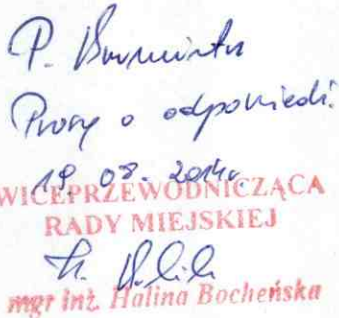 P. Burmistrz
Proszę o odpowiedź.
19.08.2014r.
WICEPRZEWODNICZĄCA
RADY MIEJSKIEJ
mgr inż. Halina Bocheńska